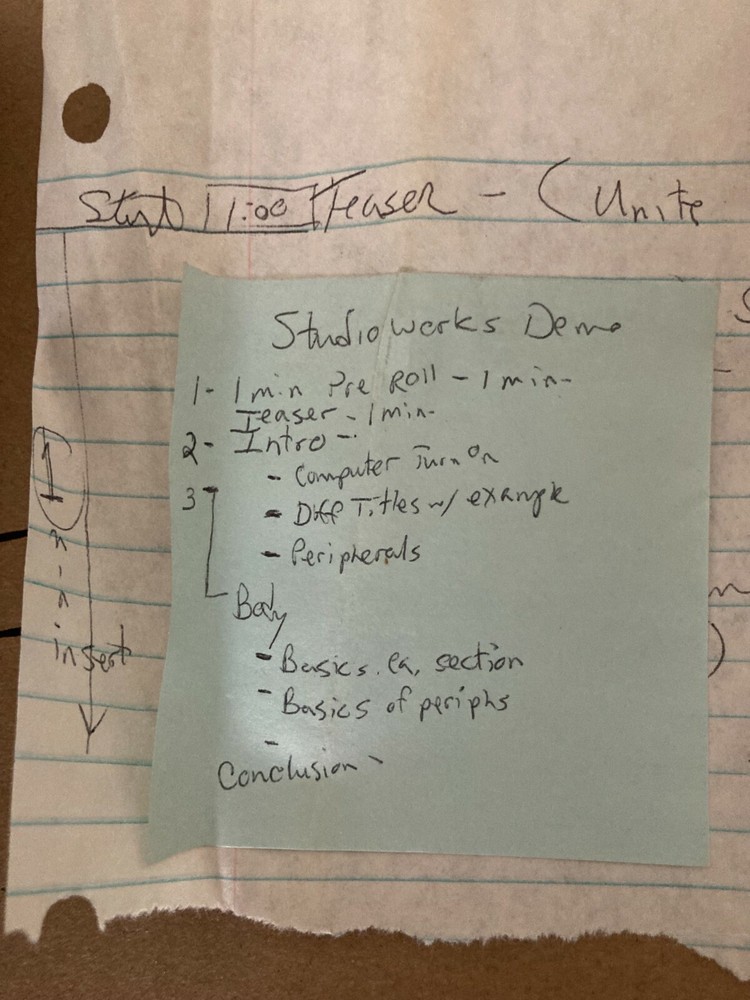 Start 1:00 Teaser - (Unite
Studioworks Demo
1- 1 min Pre Roll - 1 min-
Teaser - 1 min-
2- Intro -
- Computer Turn On
3 - Diff Titles w/ example
- Peripherals
Body
- Basics. ea, section
- Basics of periphs
-
Conclusion -
insert